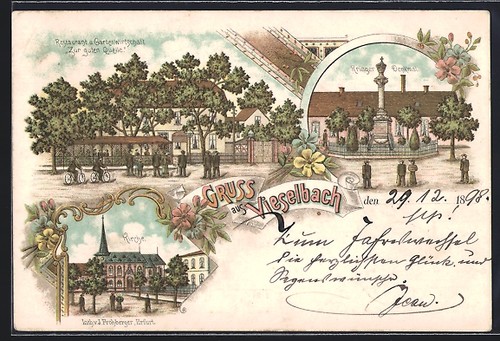 Restaurant u. Gartenwirtschaft
„Zur guten Quelle"
Krieger Denkmal
GRUSS
aus
Vieselbach
den 29.12. 1898.
Kirche
Zum Jahreswechsel
die herzlichsten Glück und
Segenswünsche
Jean.
Lith. v. J. Frohberger, Erfurt